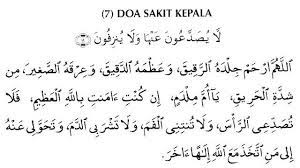 (7) DOA SAKIT KEPALA
لَا يُصَدَّعُونَ عَنْهَا وَلَا يُنزِفُونَ
اَللّٰهُمَّ ارْحَمْ جِلْدَهُ الرَّقِيْقَ، وَعَظْمَهُ الدَّقِيْقَ، وَعِرْقَهُ الصَّغِيْرَ، مِنْ
شِدَّةِ الْحَرِيْقِ، يَاأُمَّ مِلْدَمٍ، إِنْ كُنْتِ ءَامَنْتِ بِاللّٰهِ الْعَظِيْمِ، فَلَا
تُصَدِّعِى الرَّأْسَ، وَلَا تُنْتِنِى الْفَمَ، وَلَا تَشْرَبِى الدَّمَ، وَتَحَوَّلِى عَنْهُ
إِلَى مَنِ اتَّخَذَ مَعَ اللّٰهِ إِلَهًا ءَاخَرَ.